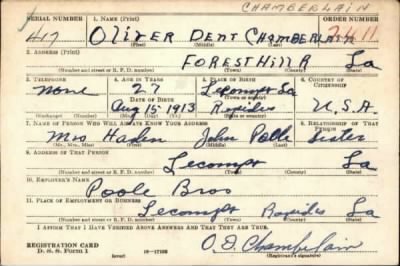 CHAMBERLAIN
SERIAL NUMBER 1. NAME (Print) ORDER NUMBER
417 OLIVER DENT CHAMBERLAIN 2411
(First) (Middle) (Last)
2. ADDRESS (Print)
FORESTHILL R La
(Number and street or R. F. D. number) (Town) (County) (State)
3. TELEPHONE 4. AGE IN YEARS 5. PLACE OF BIRTH 6. COUNTRY OF CITIZENSHIP
none 27 Lecompte La
DATE OF BIRTH (Town or county)
Aug 15 1913 Rapides U.S.A.
(Exchange) (Number) (Mo.) (Day) (Yr.) (State or country)
7. NAME OF PERSON WHO WILL ALWAYS KNOW YOUR ADDRESS 8. RELATIONSHIP OF THAT PERSON
Mrs Haden John Sister
(Mr., Mrs., Miss) (First) (Middle) (Last)
9. ADDRESS OF THAT PERSON
Lecompt La
(Number and street or R. F. D. number) (Town) (County) (State)
10. EMPLOYER'S NAME
Poole Bros
11. PLACE OF EMPLOYMENT OR BUSINESS
Lecompt Rapides La
(Number and street or R. F. D. number) (Town) (County) (State)
I AFFIRM THAT I HAVE VERIFIED ABOVE ANSWERS AND THAT THEY ARE TRUE.
O. D. Chamberlain
REGISTRATION CARD
D. S. S. Form 1 (over) (Registrant's signature)